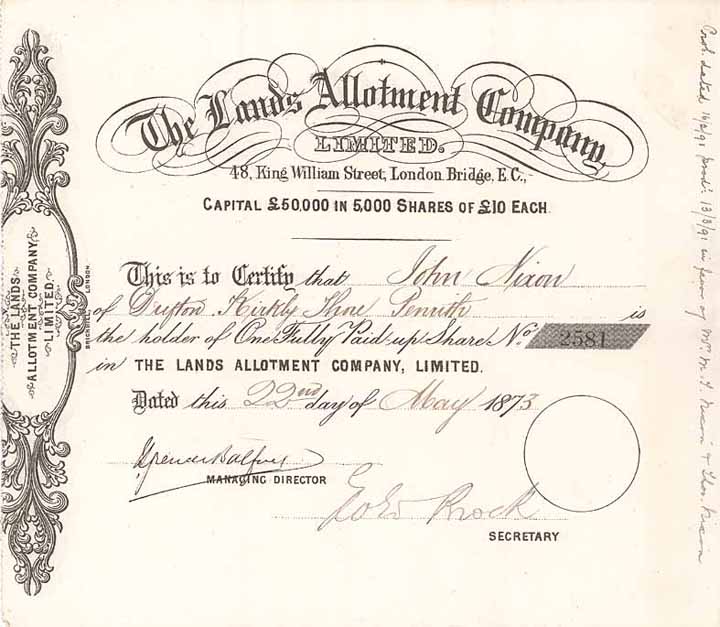 The Lands Allotment Company,
LIMITED.
48, King William Street, London Bridge, E.C.,
CAPITAL £50,000 IN 5,000 SHARES OF £10 EACH.
This is to Certify that John Nixon
of Drifton Kirkby Thore Penrith is
the holder of One Fully Paid-up Share No. 2581
in THE LANDS ALLOTMENT COMPANY, LIMITED.
Dated this 22nd day of May 1873
Spencer Balfour
MANAGING DIRECTOR
Brock
SECRETARY
THE LANDS
ALLOTMENT COMPANY
LIMITED.
LONDON
dated 16/2/91 13/3/91 in favor of Mr M. J. Nixon & Thos. Nixon